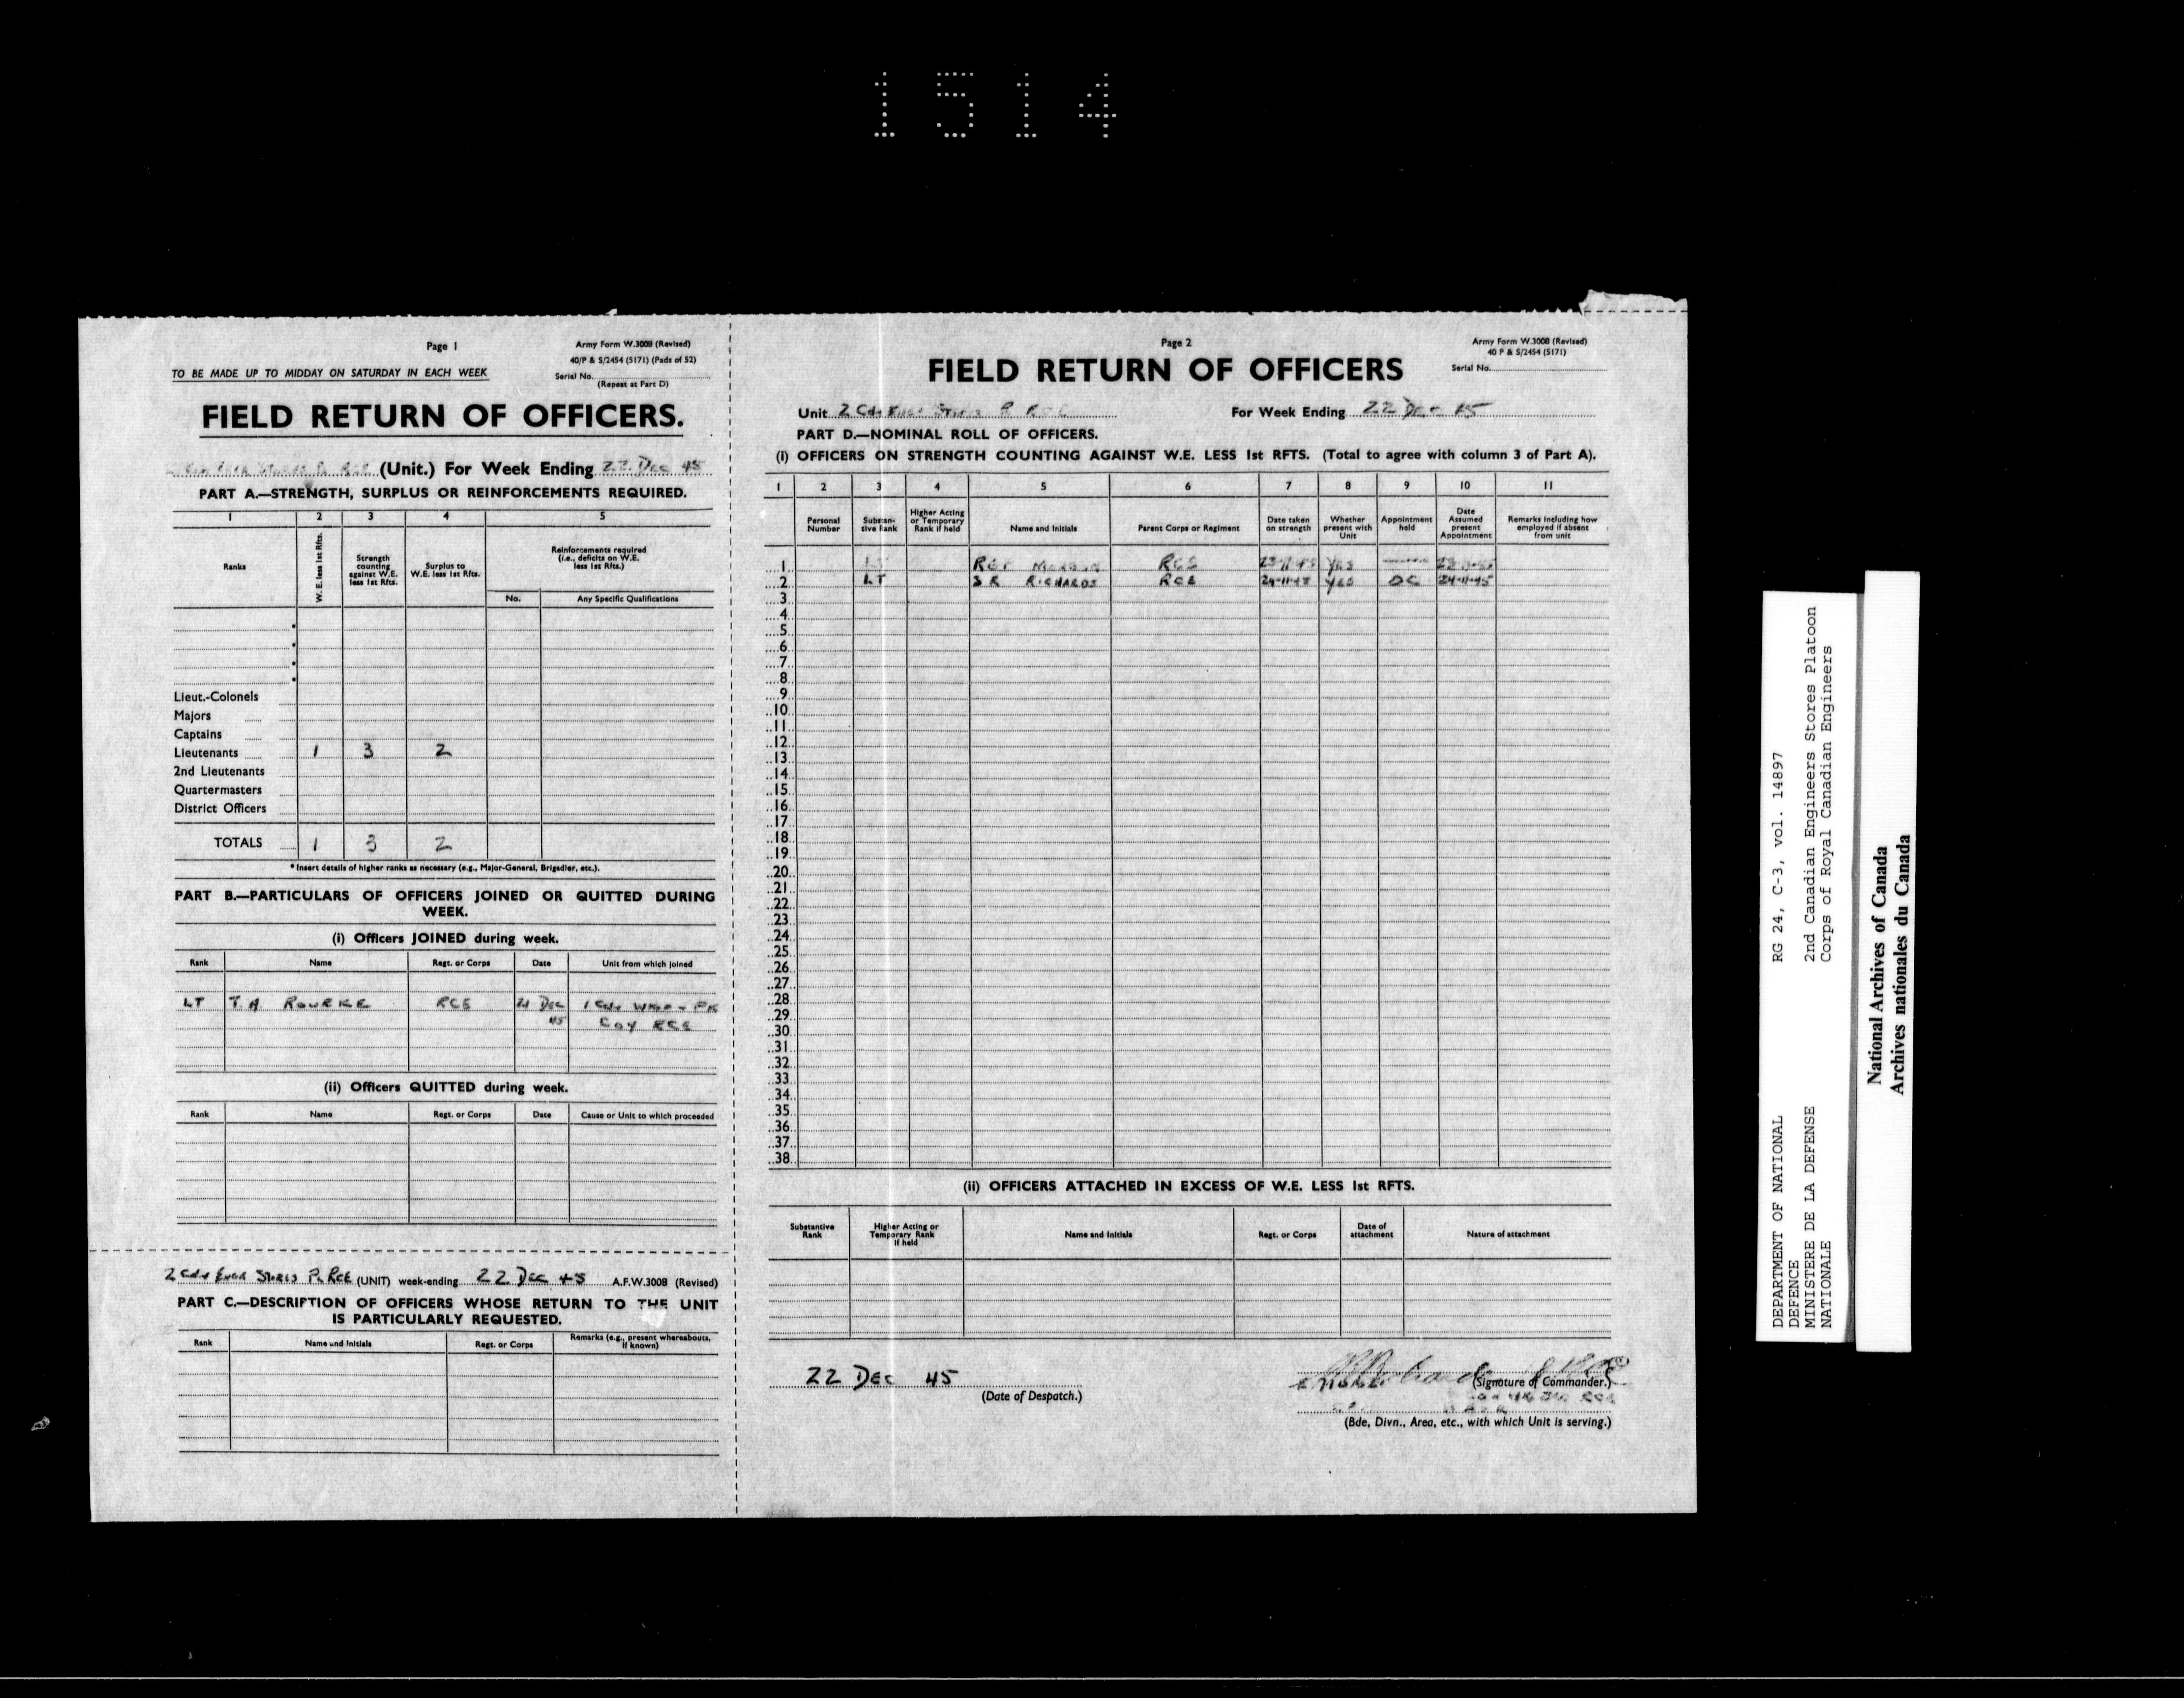 1514
Page 1
Army Form W.3008 (Revised)
40/P & S/2454 (5171) (Pads of 52)
TO BE MADE UP TO MIDDAY ON SATURDAY IN EACH WEEK
Serial No.
(Repeat at Part D)
FIELD RETURN OF OFFICERS.
(Unit.) For Week Ending 22 Dec 45
PART A.—STRENGTH, SURPLUS OR REINFORCEMENTS REQUIRED.
1 2 3 4 5
Ranks
W. E. less 1st Rfts.
Strength counting against W.E. less 1st Rfts.
Surplus to W.E. less 1st Rfts.
Reinforcements required (i.e., deficits on W.E. less 1st Rfts.)
No. Any Specific Qualifications
Lieut.-Colonels
Majors
Captains
Lieutenants 1 3 2
2nd Lieutenants
Quartermasters
District Officers
TOTALS 1 3 2
* Insert details of higher ranks as necessary (e.g., Major-General, Brigadier, etc.).
PART B.—PARTICULARS OF OFFICERS JOINED OR QUITTED DURING
WEEK.
(i) Officers JOINED during week.
Rank Name Regt. or Corps Date Unit from which joined
LT T. A ROURKE RCE 21 Dec 1 Cdn
45 COY RCE
(ii) Officers QUITTED during week.
Rank Name Regt. or Corps Date Cause or Unit to which proceeded
2 Cdn Engr Stores Pl RCE (UNIT) week-ending 22 Dec 45 A.F.W.3008 (Revised)
PART C.—DESCRIPTION OF OFFICERS WHOSE RETURN TO THE UNIT
IS PARTICULARLY REQUESTED.
Rank Name and Initials Regt. or Corps Remarks (e.g., present whereabouts, if known)
Page 2
Army Form W.3008 (Revised)
40 P & S/2454 (5171)
FIELD RETURN OF OFFICERS
Serial No.
Unit 2 Cdn Engr Stores For Week Ending 22 Dec 45
PART D.—NOMINAL ROLL OF OFFICERS.
(i) OFFICERS ON STRENGTH COUNTING AGAINST W.E. LESS 1st RFTS. (Total to agree with column 3 of Part A).
1 2 3 4 5 6 7 8 9 10 11
Personal Number
Substantive Rank
Higher Acting or Temporary Rank if held
Name and Initials
Parent Corps or Regiment
Date taken on strength
Whether present with Unit
Appointment held
Date Assumed present Appointment
Remarks including how employed if absent from unit
1 RCE Yes
2 LT S R RICHARDS RCE 24-11-45 yes OC 24-11-45
3
4
5
6
7
8
9
10
11
12
13
14
15
16
17
18
19
20
21
22
23
24
25
26
27
28
29
30
31
32
33
34
35
36
37
38
(ii) OFFICERS ATTACHED IN EXCESS OF W.E. LESS 1st RFTS.
Substantive Rank
Higher Acting or Temporary Rank if held
Name and Initials
Regt. or Corps
Date of attachment
Nature of attachment
22 DEC 45
(Date of Despatch.)
(Signature of Commander.)
(Bde, Divn., Area, etc., with which Unit is serving.)
DEPARTMENT OF NATIONAL
DEFENCE
MINISTERE DE LA DEFENSE
NATIONALE
RG 24, C-3, vol. 14897
2nd Canadian Engineers Stores Platoon
Corps of Royal Canadian Engineers
National Archives of Canada
Archives nationales du Canada